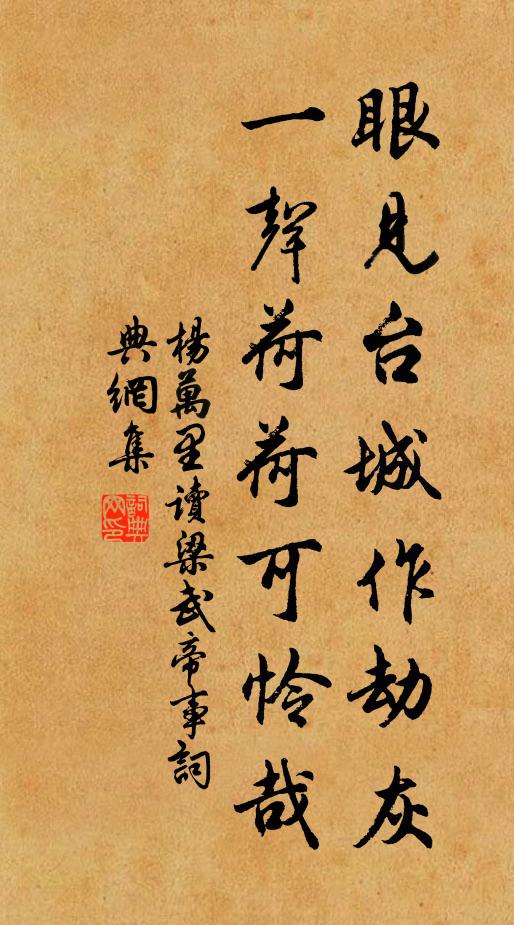 眼見台城作劫灰
一聲荷荷可怜哉
楊萬里读梁武帝事詞
典網集
詞典網印